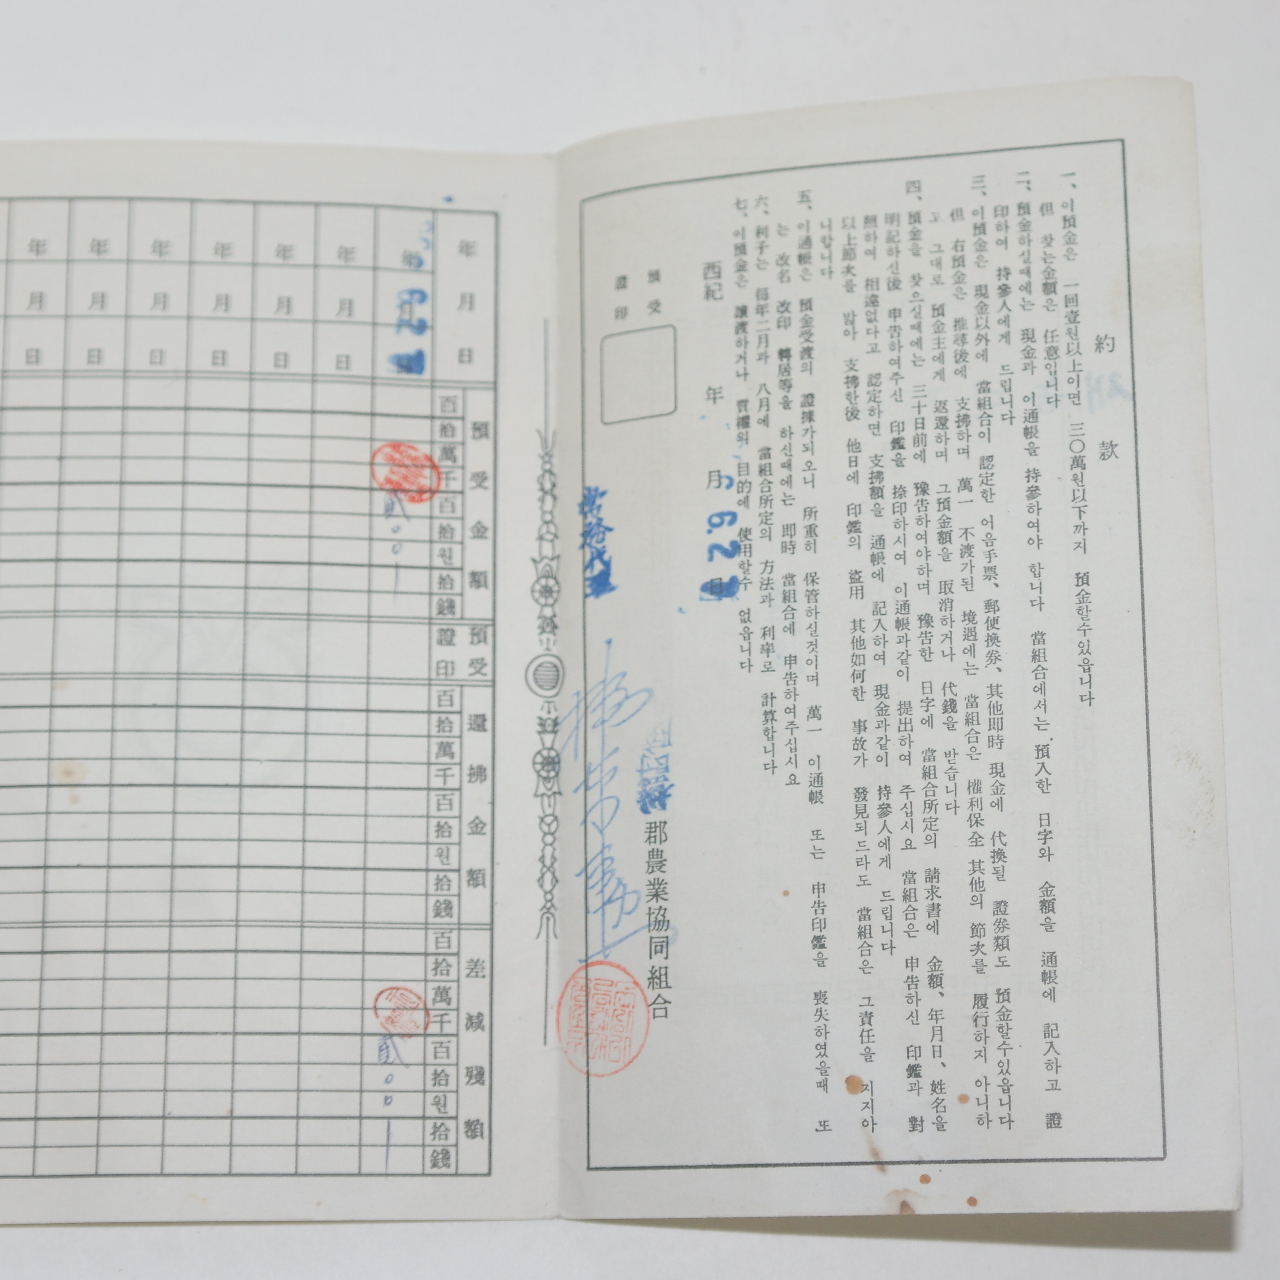 約款
一、이預金은 一回壹원以上이면 三〇萬원以下까지 預金할수있읍니다
但 찾는金額은 任意입니다
二、預金하실때에는 現金과 이通帳을 持參하여야 합니다 當組合에서는 預入한 日字와 金額을 通帳에 記入하고 證
印하여 持參人에게 드립니다
三、이預金은 現金以外에 當組合이 認定한 어음手票、郵便換券、其他即時 現金에 代換될 證券類도 預金할수있읍니다
但 右預金은 推尋後에 支拂하며 萬一 不渡가된 境遇에는 當組合은 權利保全 其他의 節次를 履行하지 아니하
고 그대로 預金主에게 返還하며 그預金額을 取消하거나 代錢을 받습니다
四、預金을 찾으실때에는 三十日前에 豫告하여야하며 豫告한 日字에 當組合所定의 請求書에 金額、年月日、姓名을
明記하신後 申告하여주신 印鑑을 捺印하시여 이通帳과같이 提出하여 주십시요 當組合은 申告하신 印鑑과 對
照하여 相違없다고 認定하면 支拂額을 通帳에 記入하여 現金과같이 持參人에게 드립니다
以上節次를 밟아 支拂한後 他日에 印鑑의 盜用 其他如何한 事故가 發見되드라도 當組合은 그責任을 지지아
니합니다
五、이通帳은 預金受渡의 證據가되오니 所重히 保管하실것이며 萬一 이通帳 또는 申告印鑑을 喪失하였을때 또
는 改名 改印 轉居等을 하신때에는 即時 當組合에 申告하여주십시요
六、利子는 每年二月과 八月에 當組合所定의 方法과 利率로 計算합니다
七、이預金은 讓渡하거나 質權의 目的에 使用할수 없읍니다
西紀 年 月 日
6 6.2
預受
證印
郡農業協同組合
年 月 日
預受金額
百拾萬千百拾원拾錢
預受
證印
還拂金額
百拾萬千百拾원拾錢
差減殘額
百拾萬千百拾원拾錢
年 月 日
6 2
貳00
貳00
年 月 日
年 月 日
年 月 日
年 月 日
年 月 日
年 月 日